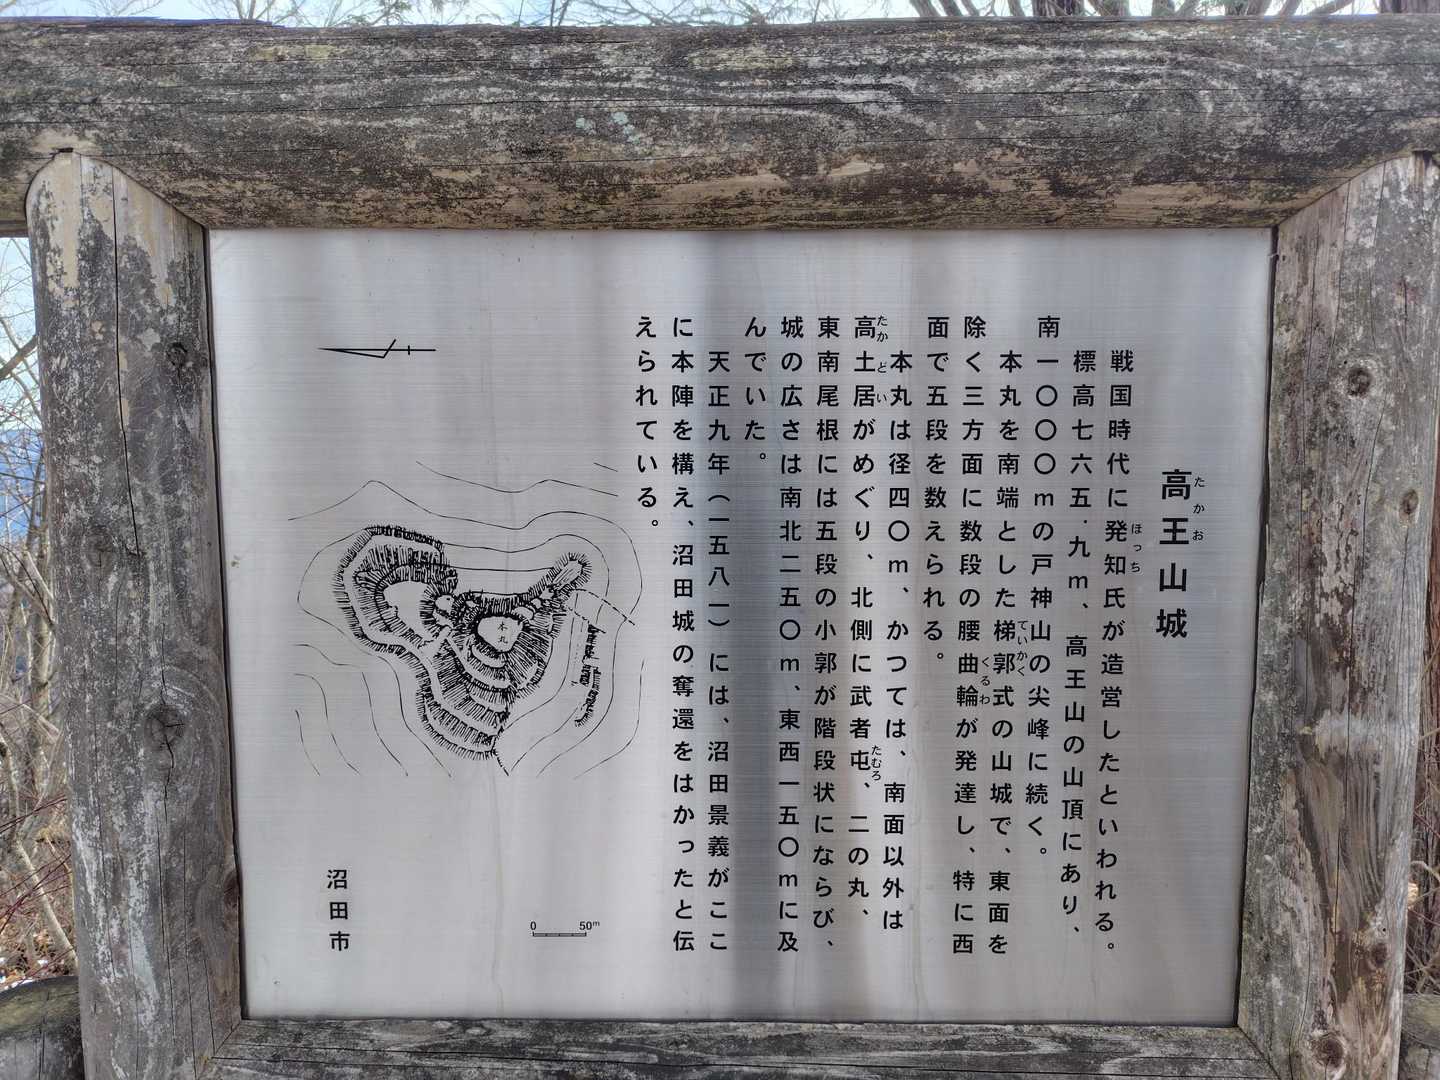 高王山城
たかお
戦国時代に発知氏が造営したといわれる。
ほっち
標高七六五・九m、高王山の山頂にあり、
南一〇〇〇mの戸神山の尖峰に続く。
本丸を南端とした梯郭式の山城で、東面を
ていかく
除く三方面に数段の腰曲輪が発達し、特に西
くるわ
面で五段を数えられる。
本丸は径四〇m、かつては、南面以外は
高土居がめぐり、北側に武者屯、二の丸、
たかどい
たむろ
東南尾根には五段の小郭が階段状にならび、
城の広さは南北二五〇m、東西一五〇mに及
んでいた。
天正九年（一五八一）には、沼田景義がここ
に本陣を構え、沼田城の奪還をはかったと伝
えられている。
本丸
0 50m
沼田市